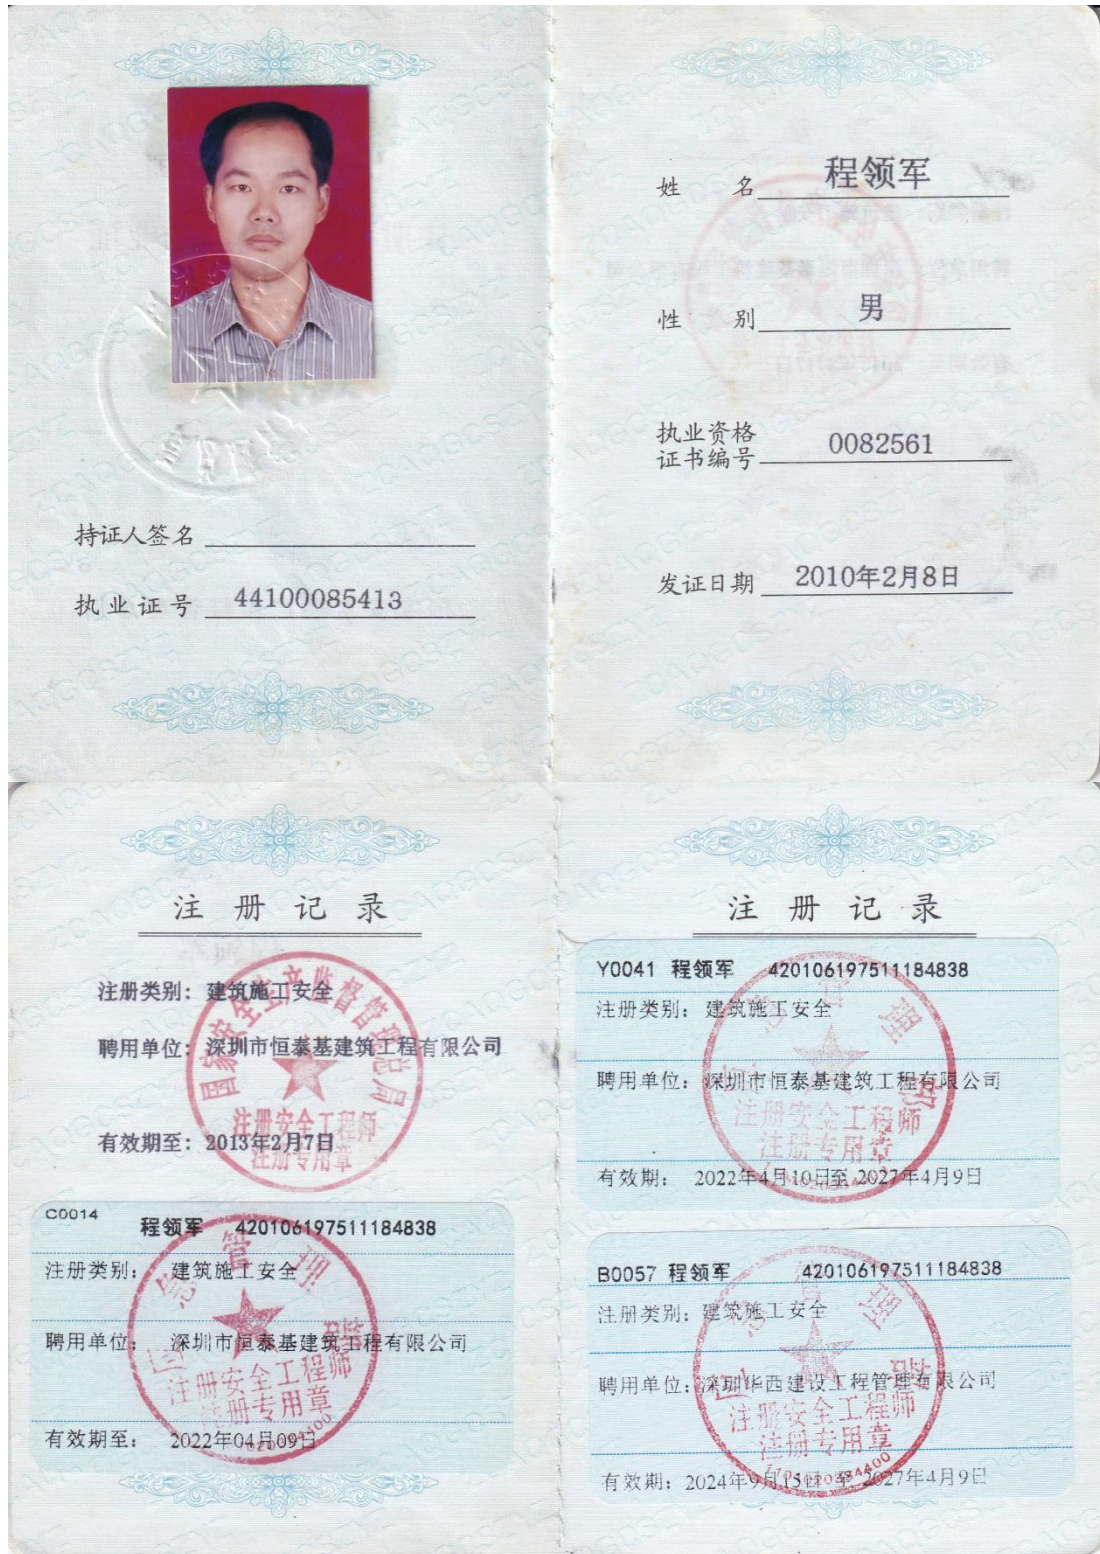 姓 名 程领军
性 别 男
执业资格
证书编号 0082561
发证日期 2010年2月8日
持证人签名
执业证号 44100085413
注册记录
注册类别：建筑施工安全
聘用单位：深圳市恒泰基建筑工程有限公司
有效期至：2013年2月7日
国家安全生产监督管理总局
注册安全工程师
注册专用章
C0014
程领军 420106197511184838
注册类别： 建筑施工安全
聘用单位： 深圳市恒泰基建筑工程有限公司
有效期至： 2022年04月09日
急管理部
注册安全工程师
注册专用章
注册记录
Y0041 程领军 420106197511184838
注册类别：建筑施工安全
聘用单位：深圳市恒泰基建筑工程有限公司
有效期： 2022年4月10日至 2027年4月9日
急管理部
注册安全工程师
注册专用章
B0057 程领军 420106197511184838
注册类别：建筑施工安全
聘用单位：深圳华西建设工程管理有限公司
有效期：2024年9月15日 至 2027年4月9日
急管理部
注册安全工程师
注册专用章